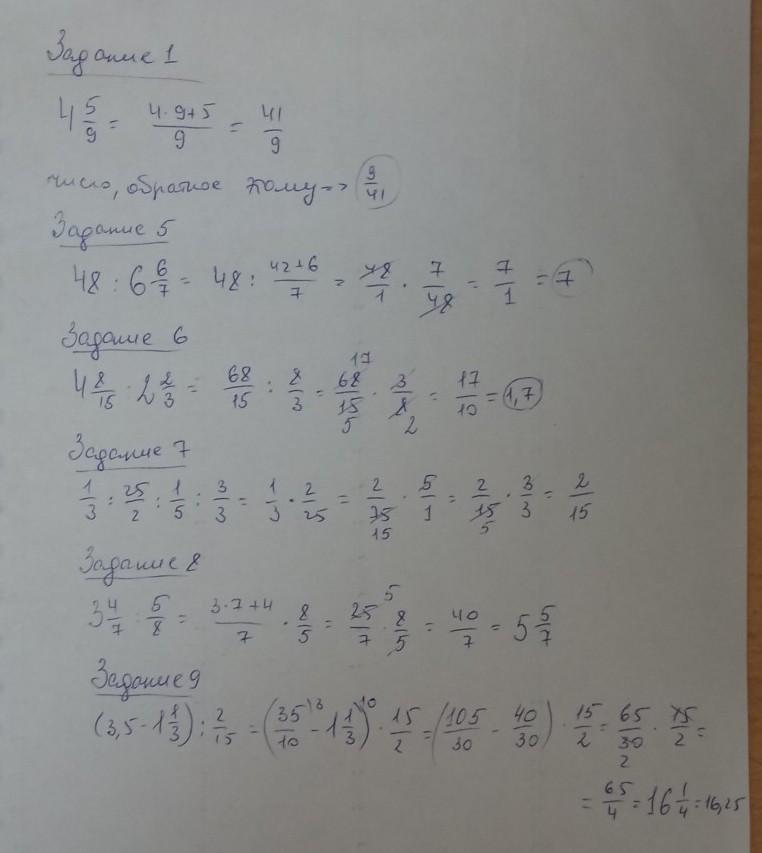 Задание 1
4 5/9 = (4·9+5)/9 = 41/9
число, обратное кому => 9/41
Задание 5
48 : 6 6/7 = 48 : (42+6)/7 = 48/1 · 7/48 = 7/1 = 7
Задание 6
4 8/15 : 2 2/3 = 68/15 : 8/3 = 68/15 · 3/8 = 17/10 = 1,7
Задание 7
1/3 : 25/2 : 1/5 : 3/3 = 1/3 · 2/25 = 2/75 · 5/1 = 2/15 · 3/3 = 2/15
Задание 8
3 4/7 : 5/8 = (3·7+4)/7 · 8/5 = 25/7 · 8/5 = 40/7 = 5 5/7
Задание 9
(3,5 - 1 1/3) : 2/15 = (35/10 - 1 1/3) · 15/2 = (105/30 - 40/30) · 15/2 = 65/30 · 15/2 =
= 65/4 = 16 1/4 = 16,25